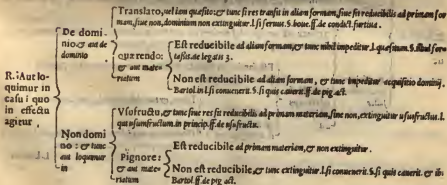 Translato, uel iam quæsito: & tunc si res transit in aliam formam, siue sit reducibilis ad primam for
mam, siue non, dominium non extinguitur. l. si seruus. §. boue. ff. de condict. furtiua.
De domi
nio: & aut de
dominio
quærendo:
& aut mate
riatum
Est reducibile ad aliam formam, & tunc nihil impeditur. l. quæsitum. §. illud fore
tasse. de legatis 3.
Non est reducibile ad aliam formam, & tunc impeditur acquisitio dominij.
Bartol. in l. si conuenerit. §. si quis cauerit. ff. de pig. act.
R. Aut lo
quimur in
casu i quo
in effectu
agitur
Non domi
no: & tunc
aut loquimur
in
Vsufructu, & tunc siue res sit reducibilis ad primam materiam, siue non, extinguitur ususfructus. l.
qui usumfructum. in princip. ff. de usufructu.
Pignore:
& aut mate
riatum
Est reducibile ad primam materiam, & non extinguitur.
Non est reducibile, & tunc extinguitur. l. si conuenerit. §. si quis cauerit. & ibi
Bartol. ff. de pig. act.